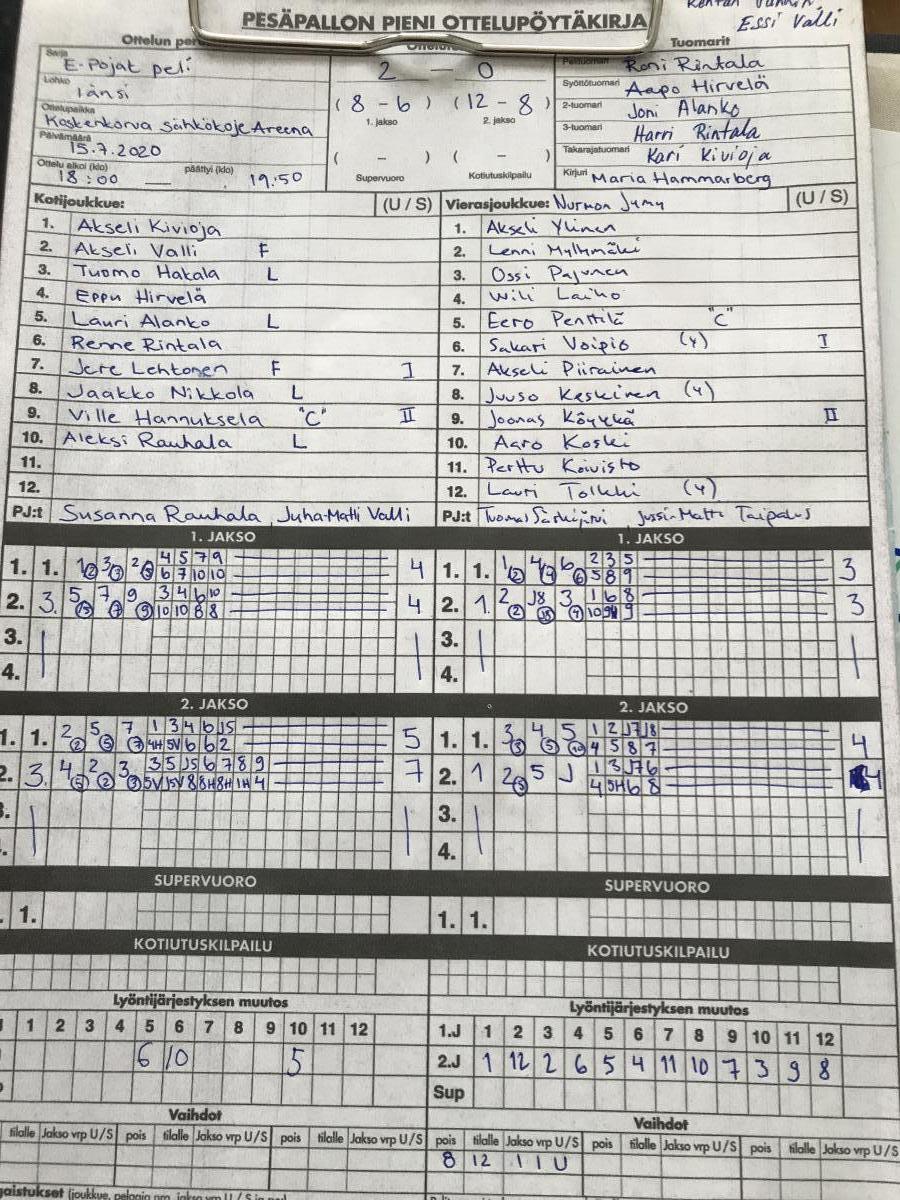 PESÄPALLON PIENI OTTELUPÖYTÄKIRJA
Essi Valli
Tuomarit
Sarja E-Pojat peli
Lohko Länsi
Ottelupaikka Koskenkorva Sähkökoje Areena
Päivämäärä 15.7.2020
Ottelu alkoi (klo) 18:00 päättyi (klo) 19:50
2 - 0
(8 - 6) (12 - 8)
1. jakso 2. jakso
( - ) ( - )
Supervuoro Kotiutuskilpailu
Pelituomari Roni Rintala
Syöttötuomari Aapo Hirvelä
2-tuomari Joni Alanko
3-tuomari Harri Rintala
Takarajatuomari Kari Kivioja
Kirjuri Maria Hammarberg
Kotijoukkue: (U / S)
1. Akseli Kivioja
2. Akseli Valli F
3. Tuomo Hakala L
4. Eppu Hirvelä
5. Lauri Alanko L
6. Renne Rintala
7. Jere Lehtonen F I
8. Jaakko Nikkola L
9. Ville Hannuksela "C" II
10. Aleksi Rauhala L
11.
12.
PJ:t Susanna Rauhala, Juha-Matti Valli
Vierasjoukkue: Nurmon Jymy (U / S)
1. Akseli Ylinen
2. Lenni Myllymäki
3. Ossi Pajunen
4. Wili Laiho
5. Eero Penttilä "C"
6. Sakari Voipio (4) I
7. Akseli Piirainen
8. Juuso Keskinen (4)
9. Joonas Köykkä II
10. Aaro Koski
11. Perttu Koivisto
12. Lauri Tolkki (4)
PJ:t Tuomas Jussi-Matti Taipalus
1. JAKSO
1. 1. 1 2 3 7 2 4 5 7 9 4
6 7 10 10
2. 3. 5 7 9 3 4 6 10 4
7 9 10 10 8 8
3.
4.
1. JAKSO
1. 1. 1 2 4 6 6 2 3 5 3
5 8 9
2. 1. 2 2 J8 3 1 6 8 3
10 9
3.
4.
2. JAKSO
1. 1. 2 2 5 5 7 7 1 3 4 6 J5 5
4H 5V 6 6 2
2. 3. 4 5 2 2 3 3 3 5 J5 6 7 8 9 7
5V 8 8H 8H 1H 4
2. JAKSO
1. 1. 3 3 4 5 5 10 1 2 J7 J8 4
4 5 8 7
2. 1 2 3 5 J 1 3 J7 6 4
4 5H 6 8
3.
4.
SUPERVUORO
1.
SUPERVUORO
1. 1.
KOTIUTUSKILPAILU
KOTIUTUSKILPAILU
Lyöntijärjestyksen muutos
1 2 3 4 5 6 7 8 9 10 11 12
6 10 5
Lyöntijärjestyksen muutos
1.J 1 2 3 4 5 6 7 8 9 10 11 12
2.J 1 12 2 6 5 4 11 10 7 3 9 8
Sup
Vaihdot
tilalle Jakso vrp U/S pois tilalle Jakso vrp U/S pois tilalle Jakso vrp U/S
Vaihdot
pois tilalle Jakso vrp U/S pois tilalle Jakso vrp U/S pois tilalle Jakso vrp U/S
8 12 1 1 U